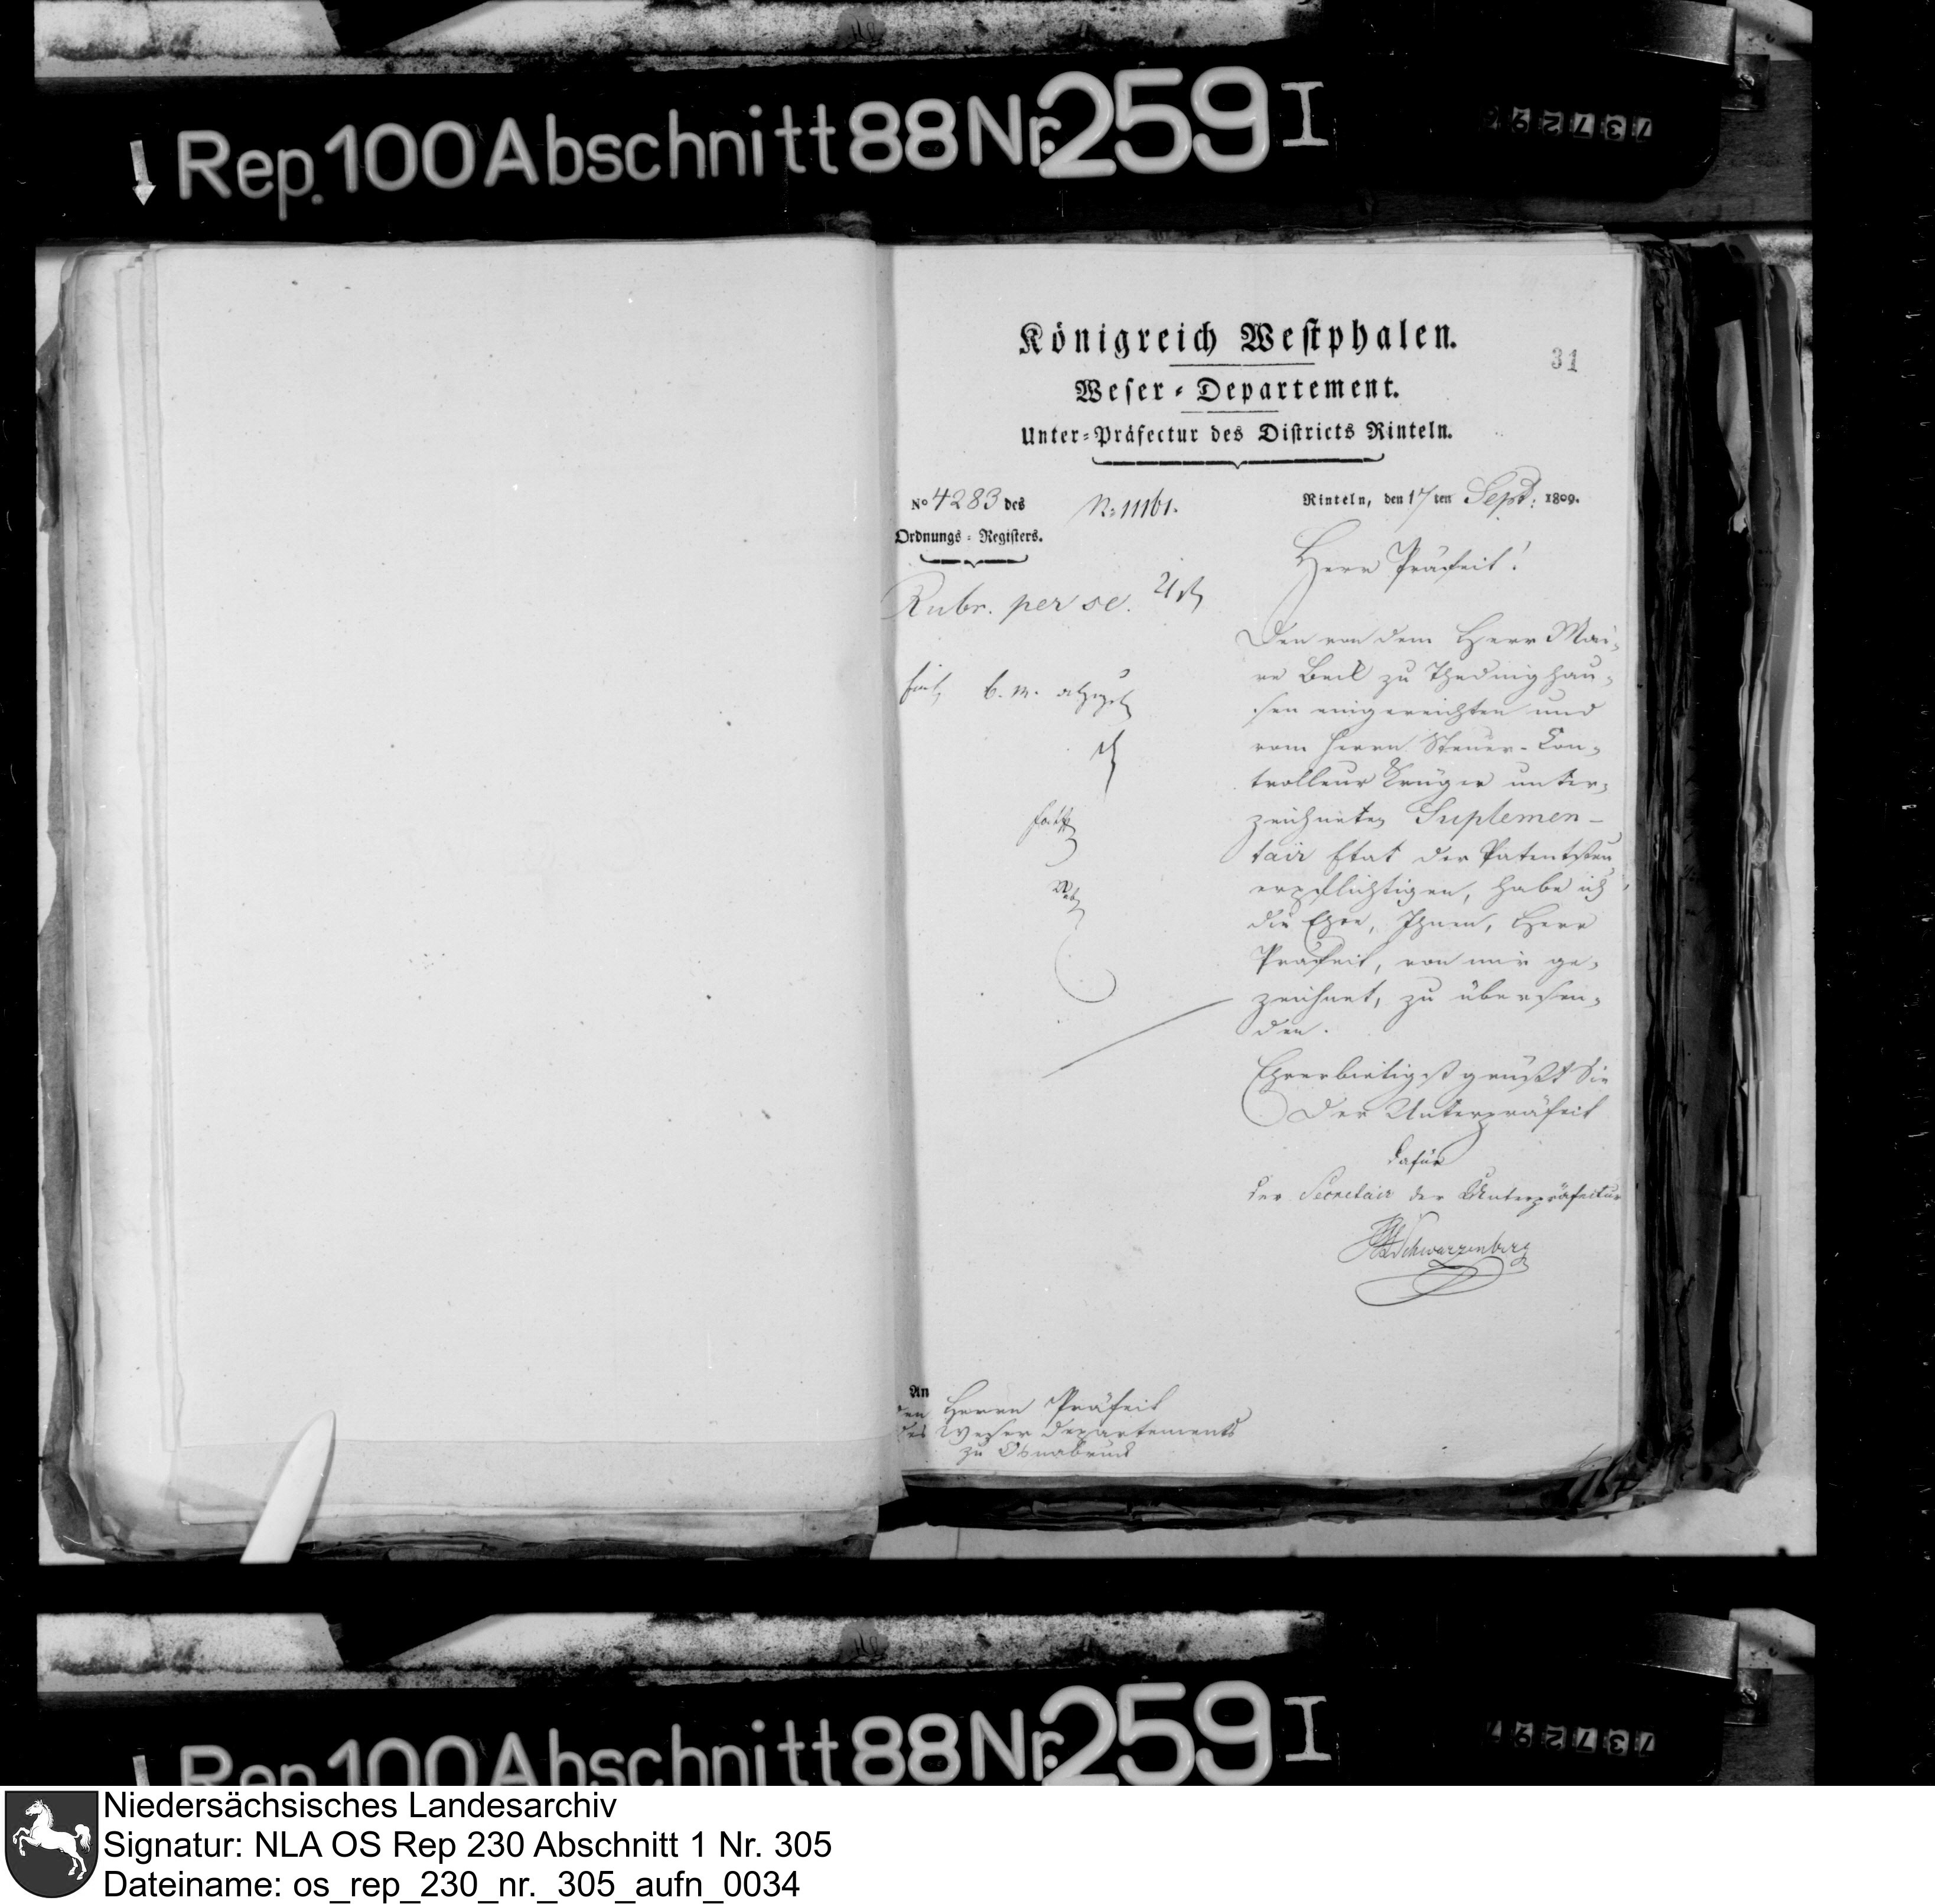 Rep. 100 Abschnitt 88 Nr. 259 I
Königreich Westphalen.
31
Weser-Departement.
Unter-Präfectur des Districts Rinteln.
No 4283 des
Ordnungs-Registers.
N: 11161.
Rinteln, den 17ten Sept: 1809.
Rubr. per se.
Herr Präfect!
Den von dem Herr Mai-
re Beck zu Thedinghau-
sen eingereichten und
vom Herrn Steuer-Con-
trolleur Krüger unter-
zeichneten Suplemen-
tair Etat der Patentsteu
erpflichtigen, habe ich
die Ehre, Ihnen, Herr
Präfect, von mir ge-
zeichnet, zu übersen-
den.
Ehrerbietigst grüßt Sie
Der Unterpräfect
dafür
der Secretair der Unterpräfectur
Schwarzenberg
An
den Herrn Präfect
des Weser Departements
zu Osnabrück
Rep. 100 Abschnitt 88 Nr. 259 I
Niedersächsisches Landesarchiv
Signatur: NLA OS Rep 230 Abschnitt 1 Nr. 305
Dateiname: os_rep_230_nr._305_aufn_0034